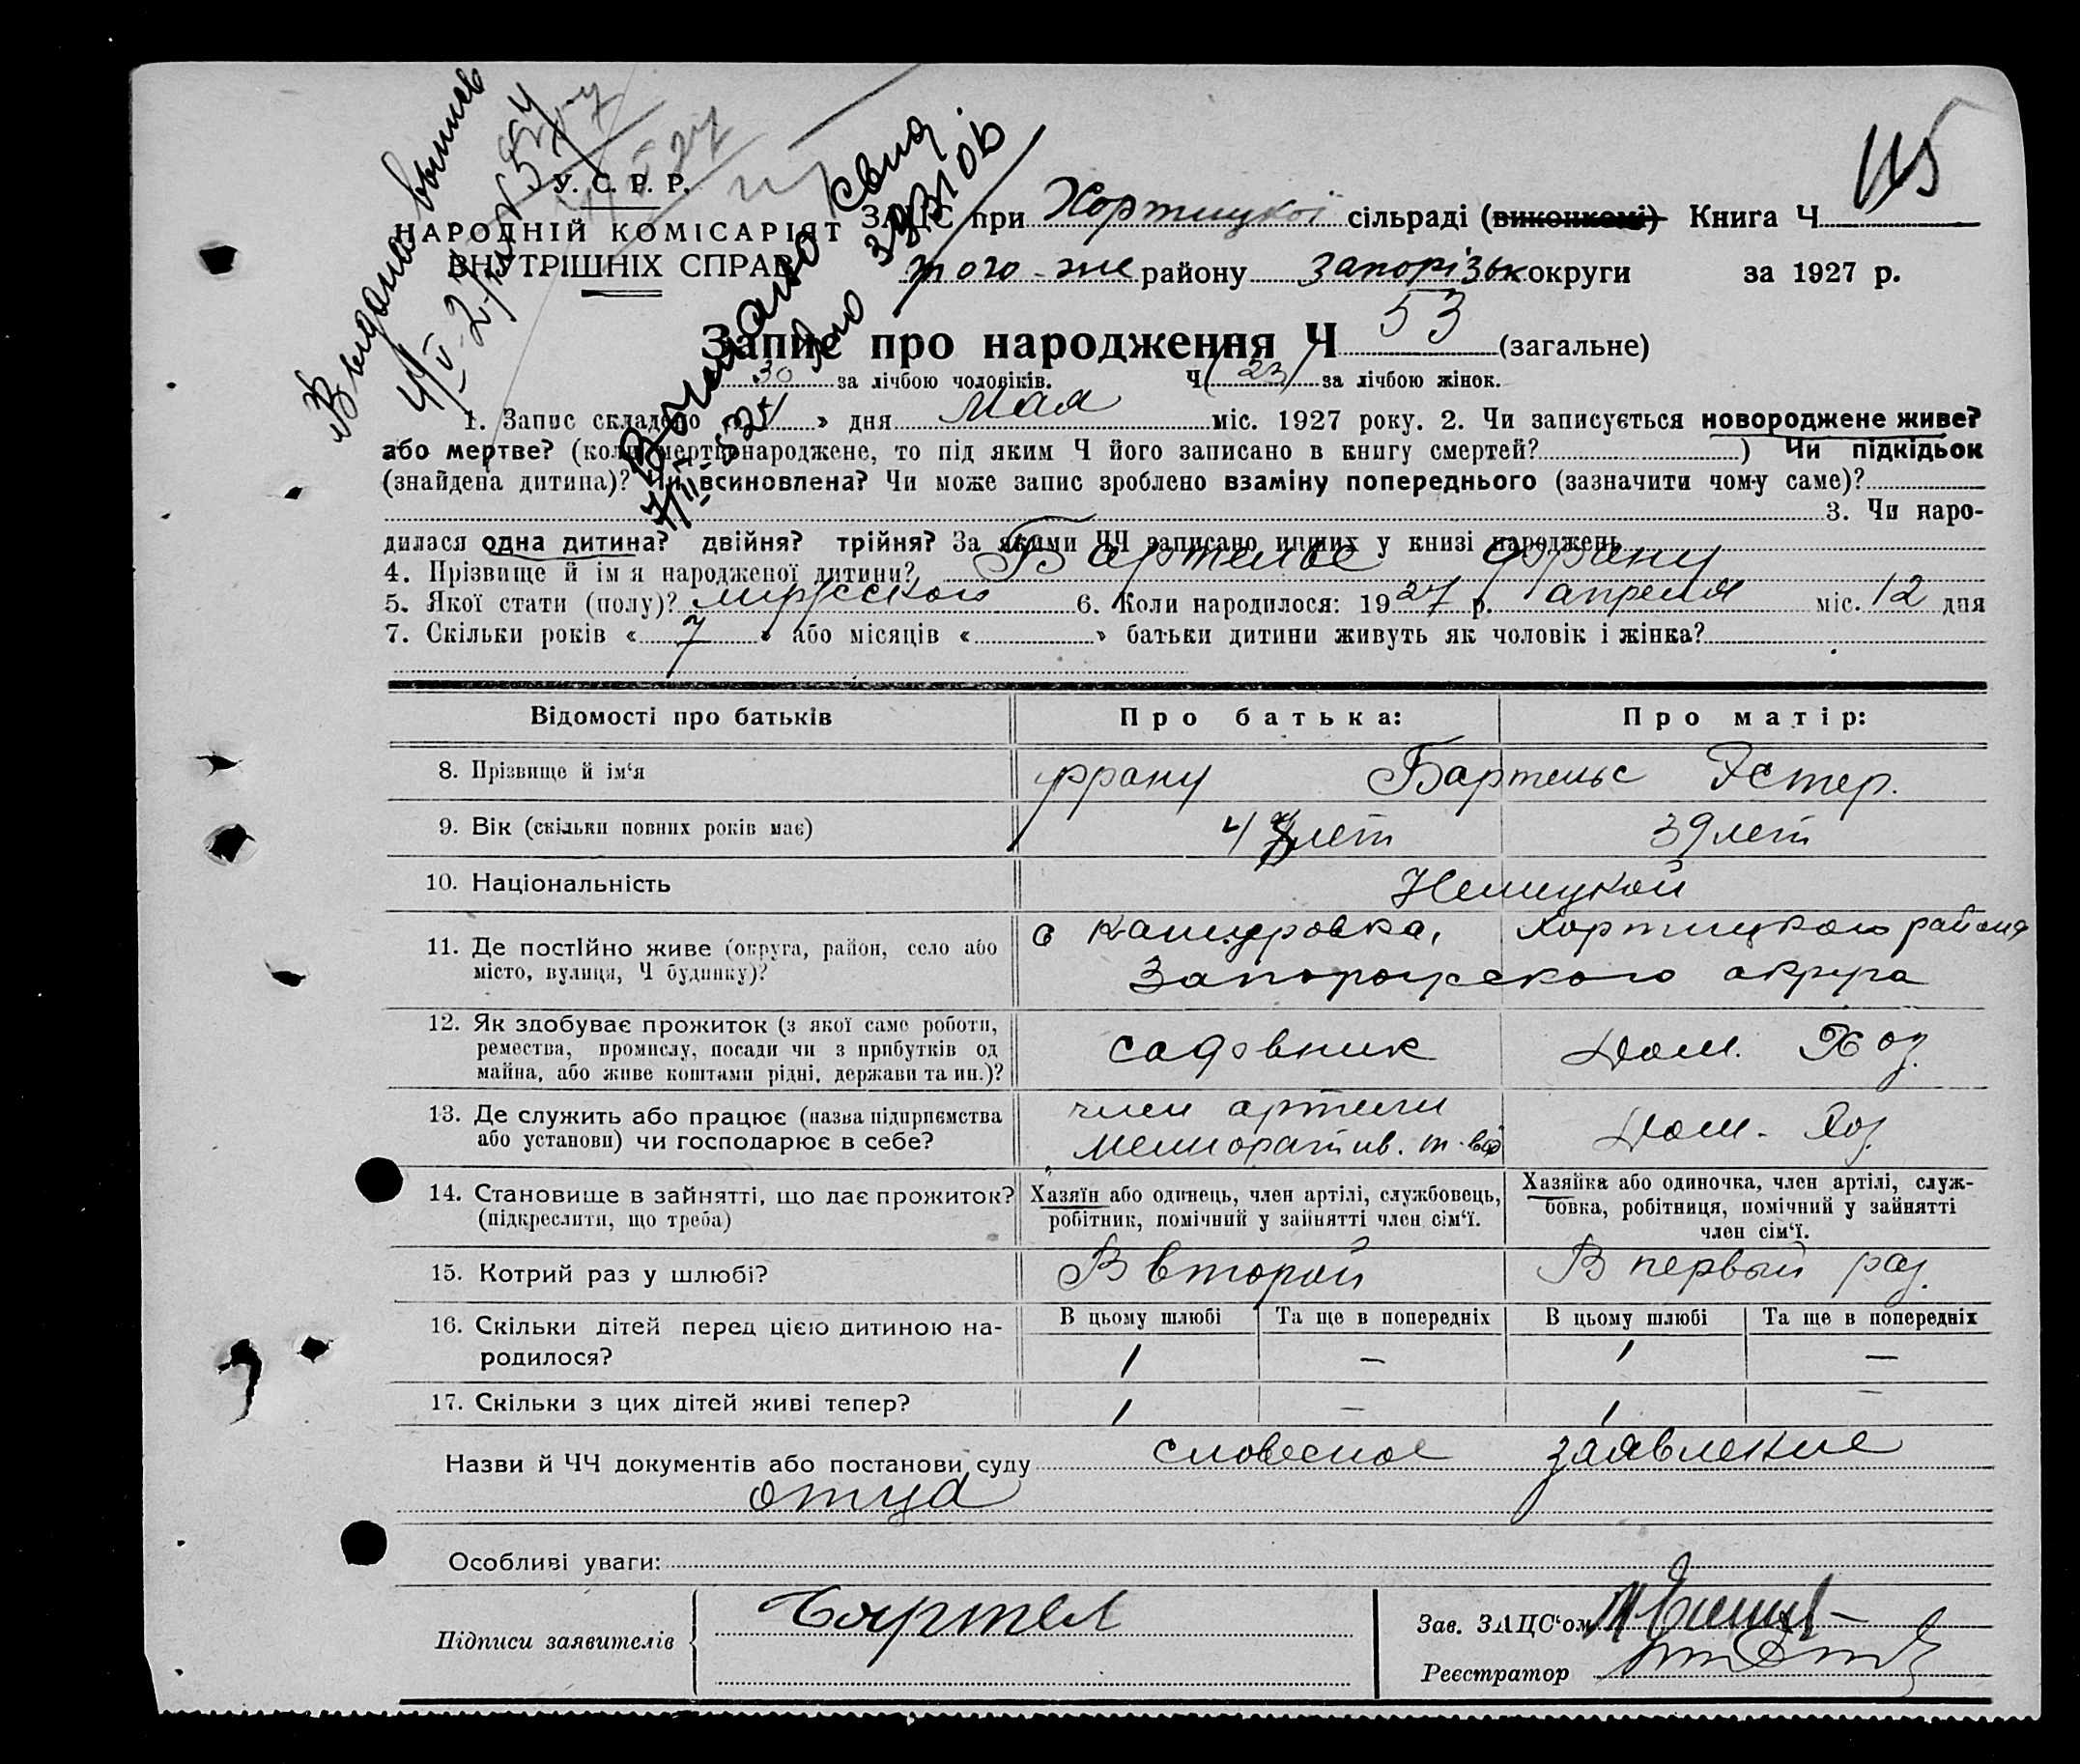 Выдано выпись
4/V-27
115
У. С. Р. Р.
НАРОДНІЙ КОМІСАРІЯТ
ВНУТРІШНІХ СПРАВ
ЗАЦС при Хортицкої сільраді (виконкомі) Книга Ч
того-же району Запорізьк округи за 1927 р.
Запис про народження Ч 53 (загальне)
30 за лічбою чоловіків. Ч (23) за лічбою жінок.
1. Запис складено « 4 » дня Мая міс. 1927 року. 2. Чи записується новороджене живе?
або мертве? (коли мертвонароджене, то під яким Ч його записано в книгу смертей? ) Чи підкідьок
(знайдена дитина)? Чи всиновлена? Чи може запис зроблено взаміну попереднього (зазначити чому саме)?
3. Чи наро-
дилася одна дитина? двійня? трійня? За якими ЧЧ записано инших у книзі народжень
4. Прізвище й імя народженої дитини? Бартельс Франц
5. Якої стати (полу)? мужского 6. Коли народилося: 1927 р. апреля міс. 12 дня
7. Скільки років « 7 » або місяців « » батьки дитини живуть як чоловік і жінка?
Відомості про батьків Про батька: Про матір:
8. Прізвище й ім‘я Франц Бартельс Эстер.
9. Вік (скільки повних років має) 47 лет 39 лет
10. Національність Немецкой
11. Де постійно живе (округа, район, село або місто, вулиця, Ч будинку)? с Канцеровка, Хортицкого района
Запорожского округа
12. Як здобуває прожиток (з якої саме роботи,
ремества, промислу, посади чи з прибутків од
майна, або живе коштами рідні, держави та ин.)? садовник Дом. Хоз.
13. Де служить або працює (назва підприємства
або установи) чи господарює в себе? член артели
Мелиоратив. т-ва Дом. Хоз
14. Становище в зайнятті, що дає прожиток?
(підкреслити, що треба)
Хазяїн або одинець, член артілі, службовець,
робітник, помічний у зайнятті член сім‘ї.
Хазяйка або одиночка, член артілі, служ-
бовка, робітниця, помічний у зайнятті
член сім‘ї.
15. Котрий раз у шлюбі? В второй В первый раз.
16. Скільки дітей перед цією дитиною на-
родилося?
В цьому шлюбі Та ще в попередніх В цьому шлюбі Та ще в попередніх
1 — 1 —
17. Скільки з цих дітей живі тепер? 1 — 1 —
Назви й ЧЧ документів або постанови суду словесное заявление
отца
Особливі уваги:
Підписи заявителів Бартел
Зав. ЗАЦС‘ом
Реєстратор